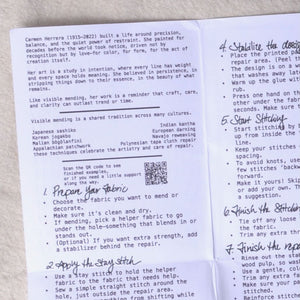 Carmen Herrera (1915–2022) built a life around precision,
balance, and the quiet power of restraint. She painted for
decades before the world took notice, driven not by
recognition but by love—for color, for form, for the act of
creation itself.
Her art is a study in intention, where every line has weight
and every space holds meaning. She believed in persistence, in
stripping things down to their essence, in the beauty of what
stays.
Like visible mending, her work is a reminder that craft, care,
and clarity can outlast trend or time.
Visible mending is a shared tradition across many cultures.
Japanese sashiko
Korean jogakbo
Malian bògòlanfini
Appalachian patchwork
Indian kantha
European darning
Navajo reweaving
Polynesian tapa cloth repair
these techniques celebrate the artistry and care of repair.
Scan the QR code to see
finished examples,
or if you need a little support
along the way.
1. Prepare Your Fabric
• Choose the fabric you want to mend or
decorate.
• Make sure it's clean and dry.
• If mending, pick a helper fabric to go
under the hole—something that blends in or
stands out.
• (Optional) If you want extra strength, add
a stabilizer behind the repair.
2. Apply the Stay Stitch
• Use a stay stitch to hold the helper
fabric to the fabric that needs help.
• Sew a simple straight stitch around the
hole, just outside the repair area.
from shifting while
4. Stabilize the design
• Place the printed pa
repair area. (Peel the
• The design is on a w
that washes away late
• Warm up the glue with
bond.
• Press one hand on the
other under the fabr
seconds. Make sure th
5. Start Stitching
• Start stitching by
up from inside the
line.
• Keep your stitches
spacing.
• To avoid knots, use
few stitches "backw
forward.
• Make it yours! Ski
or add your own. T
a suggestion.
6. Finish the Stitching
• Tie off any loose
of the fabric.
• Trim any extra thr
7. Finish the repa
• Rinse out the stab
wood pulp, so wash
• Use a gentle, cold
• Trim any extra